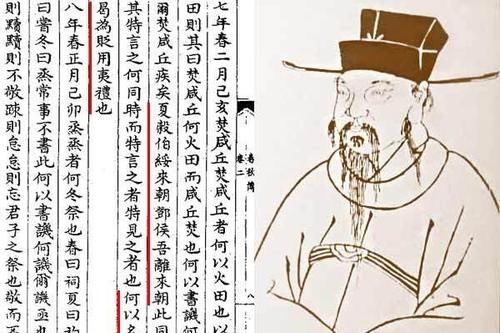 七年春二月己亥焚咸丘焚咸丘者何以火田也以
田則其曰焚咸丘何火田而咸丘焚也何以書譏
爾焚咸丘疾矣夏穀伯綏來朝鄧侯吾離來朝此同
其特言之何同時而特言之者特見之者也何以名
曷為貶用夷禮也
八年春正月己卯烝烝者何冬祭也春曰祠夏曰礿
曰嘗冬曰烝常事不書此何以書譏何譏爾譏亟也
則黷黷則不敬疎則怠怠則忘君子之祭也敬而
春秋傳
卷二
八